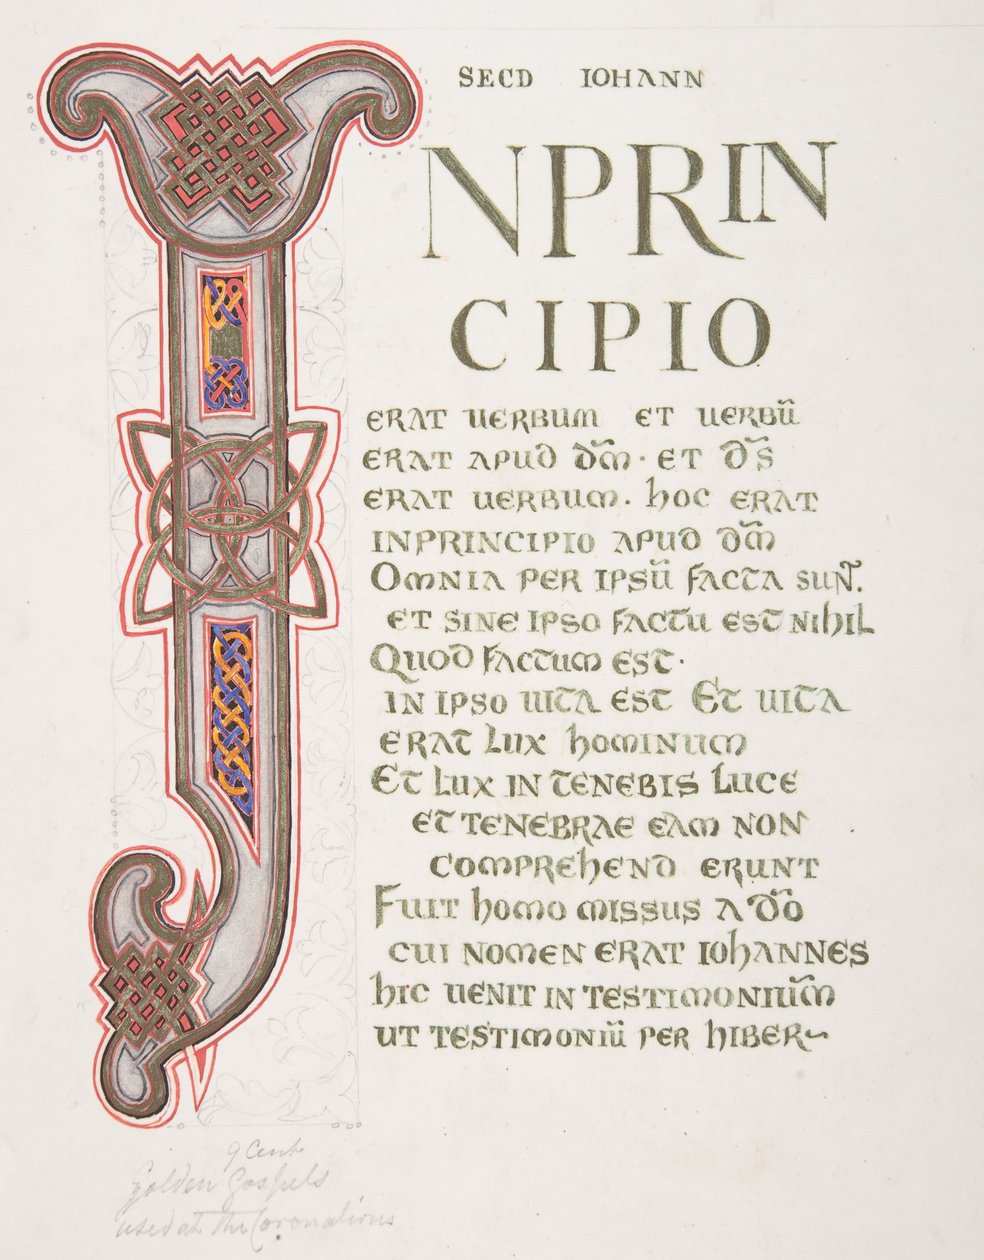 SECD IOHANN
INPRIN
CIPIO
ERAT UERBUM ET UERBŪ
ERAT APUD DM̄ · ET DS̄
ERAT UERBUM · hOC ERAT
INPRINCIPIO APUD DM̄
OMNIA PER IPSŪ FACTA SUNT̄.
ET SINE IPSO FACTŪ EST NIhIL
QUOD FACTUM EST ·
IN IPSO UITA EST ET UITA
ERAT LUX hOMINUM
ET LUX IN TENEBIS LUCE
ET TENEBRAE EAM NON
COMPREhEND ERUNT
FUIT hOMO MISSUS A DŌ
CUI NOMEN ERAT IOhANNES
hIC UENIT IN TESTIMONIUM̄
UT TESTIMONIŪ PER hIBER~
9 Cent
Golden Gospels
used at the Coronations